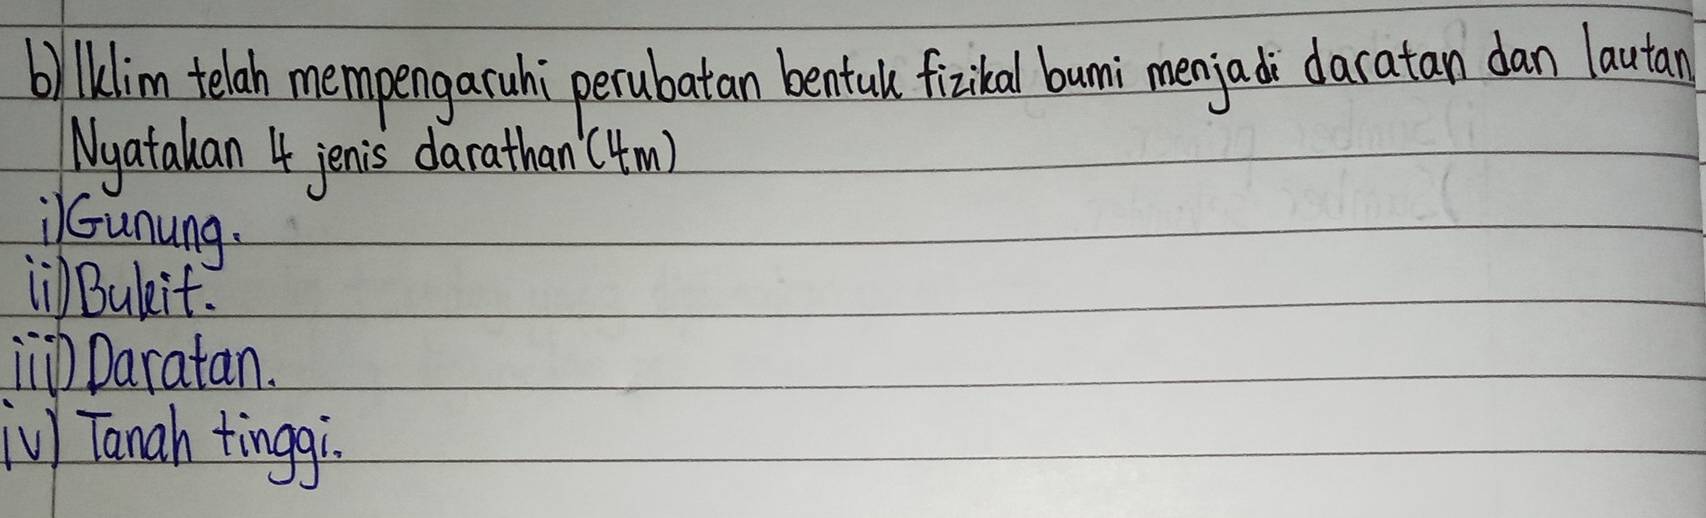 b) Iklim telah mempengaruhi perubatan bentuk fizikal bumi menjadi daratan dan lautan
Nyatakan 4 jenis darathan (4m)
i) Gunung.
ii) Bukit.
iii) Daratan.
iv) Tanah tinggi.